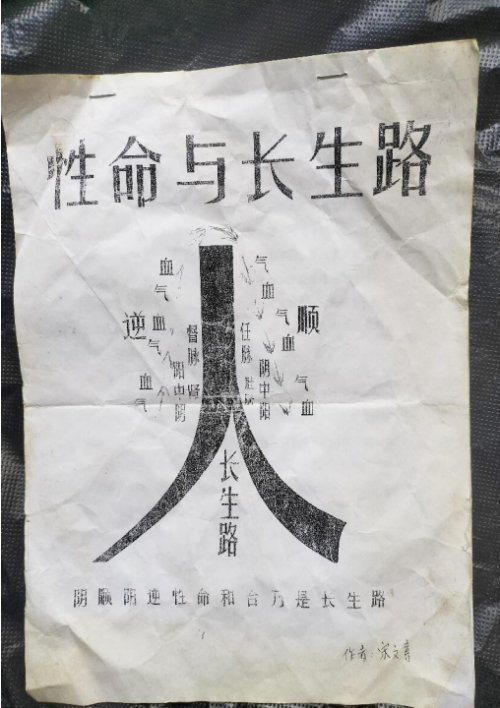 性命与长生路
血气
血气
血气
逆
督脉
肾
阳中阴
气血
气血
气血
顺
任脉
阴中阳
长生路
阴顺阴逆性命和台乃是长生路
作者:宋文